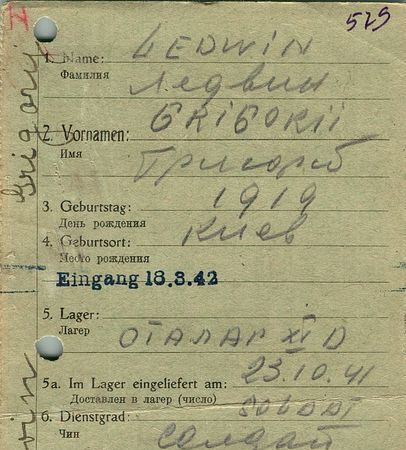 529
1. Name: LEDWIN
Фамилия Ледвин
2. Vornamen: GRIGORII
Имя Григорий
3. Geburtstag: 1919
День рождения
4. Geburtsort: Киев
Место рождения
Eingang 18.8.42
5. Lager:
Лагерь ОТАЛАГ XI D
5a. Im Lager eingeliefert am: 23.10.41
Доставлен в лагерь (число)
6. Dienstgrad: SOLDAT
Чин салдат
Grigorij